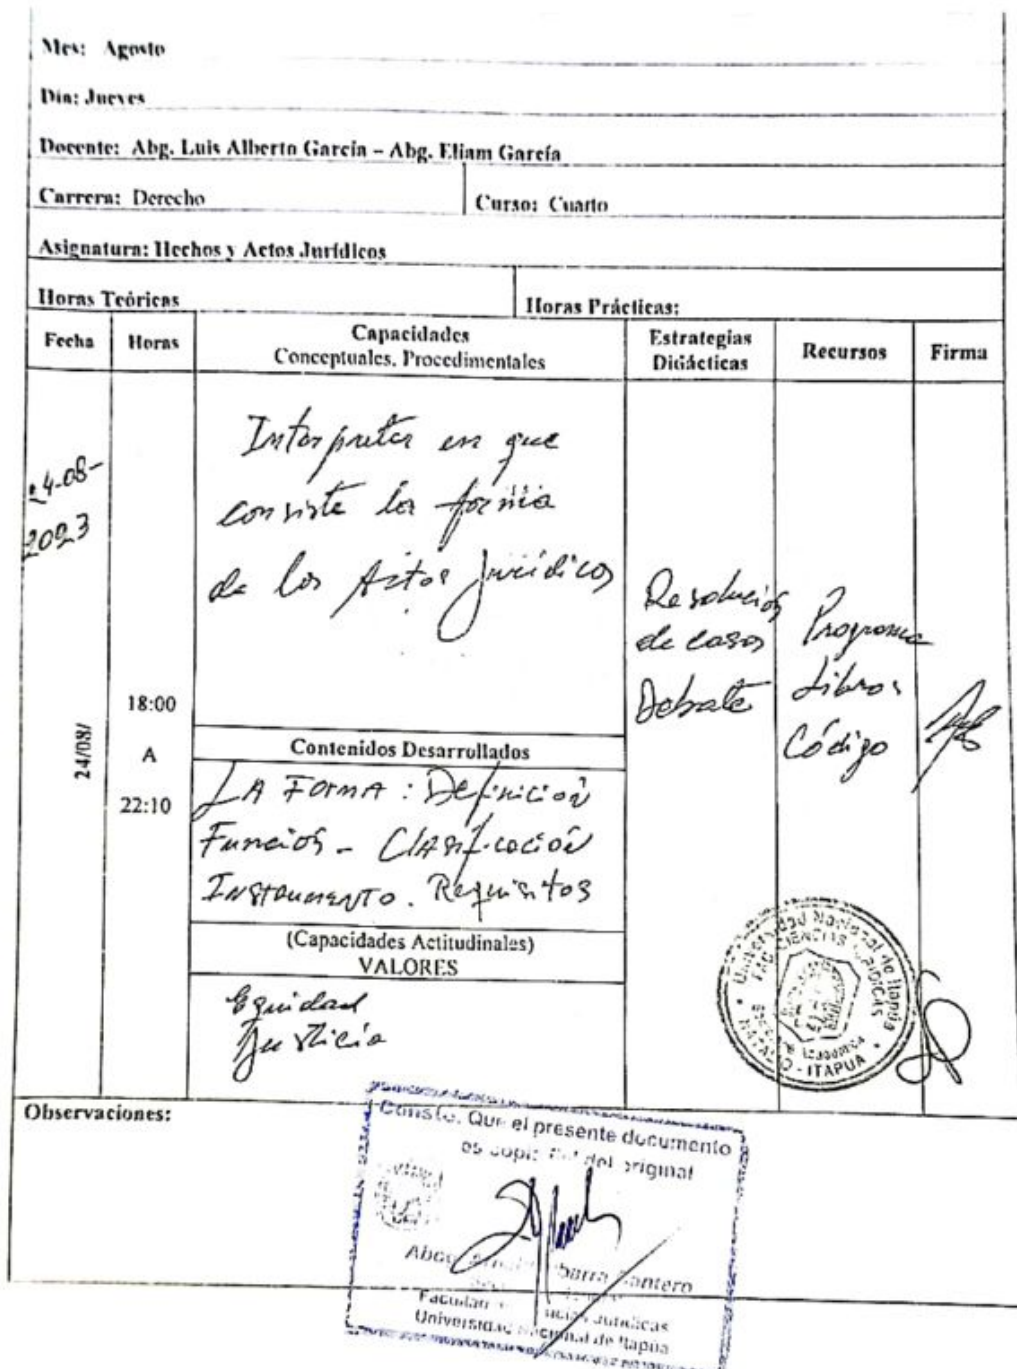 Mes: Agosto
Día: Jueves
Docente: Abg. Luis Alberto García – Abg. Eliam García
Carrera: Derecho
Curso: Cuarto
Asignatura: Hechos y Actos Jurídicos
Horas Teóricas
Horas Prácticas:
Fecha
Horas
Capacidades
Conceptuales, Procedimentales
Estrategias
Didácticas
Recursos
Firma
24-08-
2023
24/08/
18:00
A
22:10
Interpretar en que
consiste la forma
de los Actos Jurídicos
Contenidos Desarrollados
LA FORMA: Definición
Función - Clasificación
INSTRUMENTO. Requisitos
(Capacidades Actitudinales)
VALORES
Equidad
Justicia
Resolución
de casos
Debate
Programa
Libros
Código
Universidad Nacional de Itapúa
FAC. CIENCIAS JURIDICAS
NATALIO - ITAPUA
Observaciones:
Consta, Que el presente documento
es copia fiel del original
Abog. Ibarra Santero
Facultad de Ciencias Jurídicas
Universidad Nacional de Itapúa